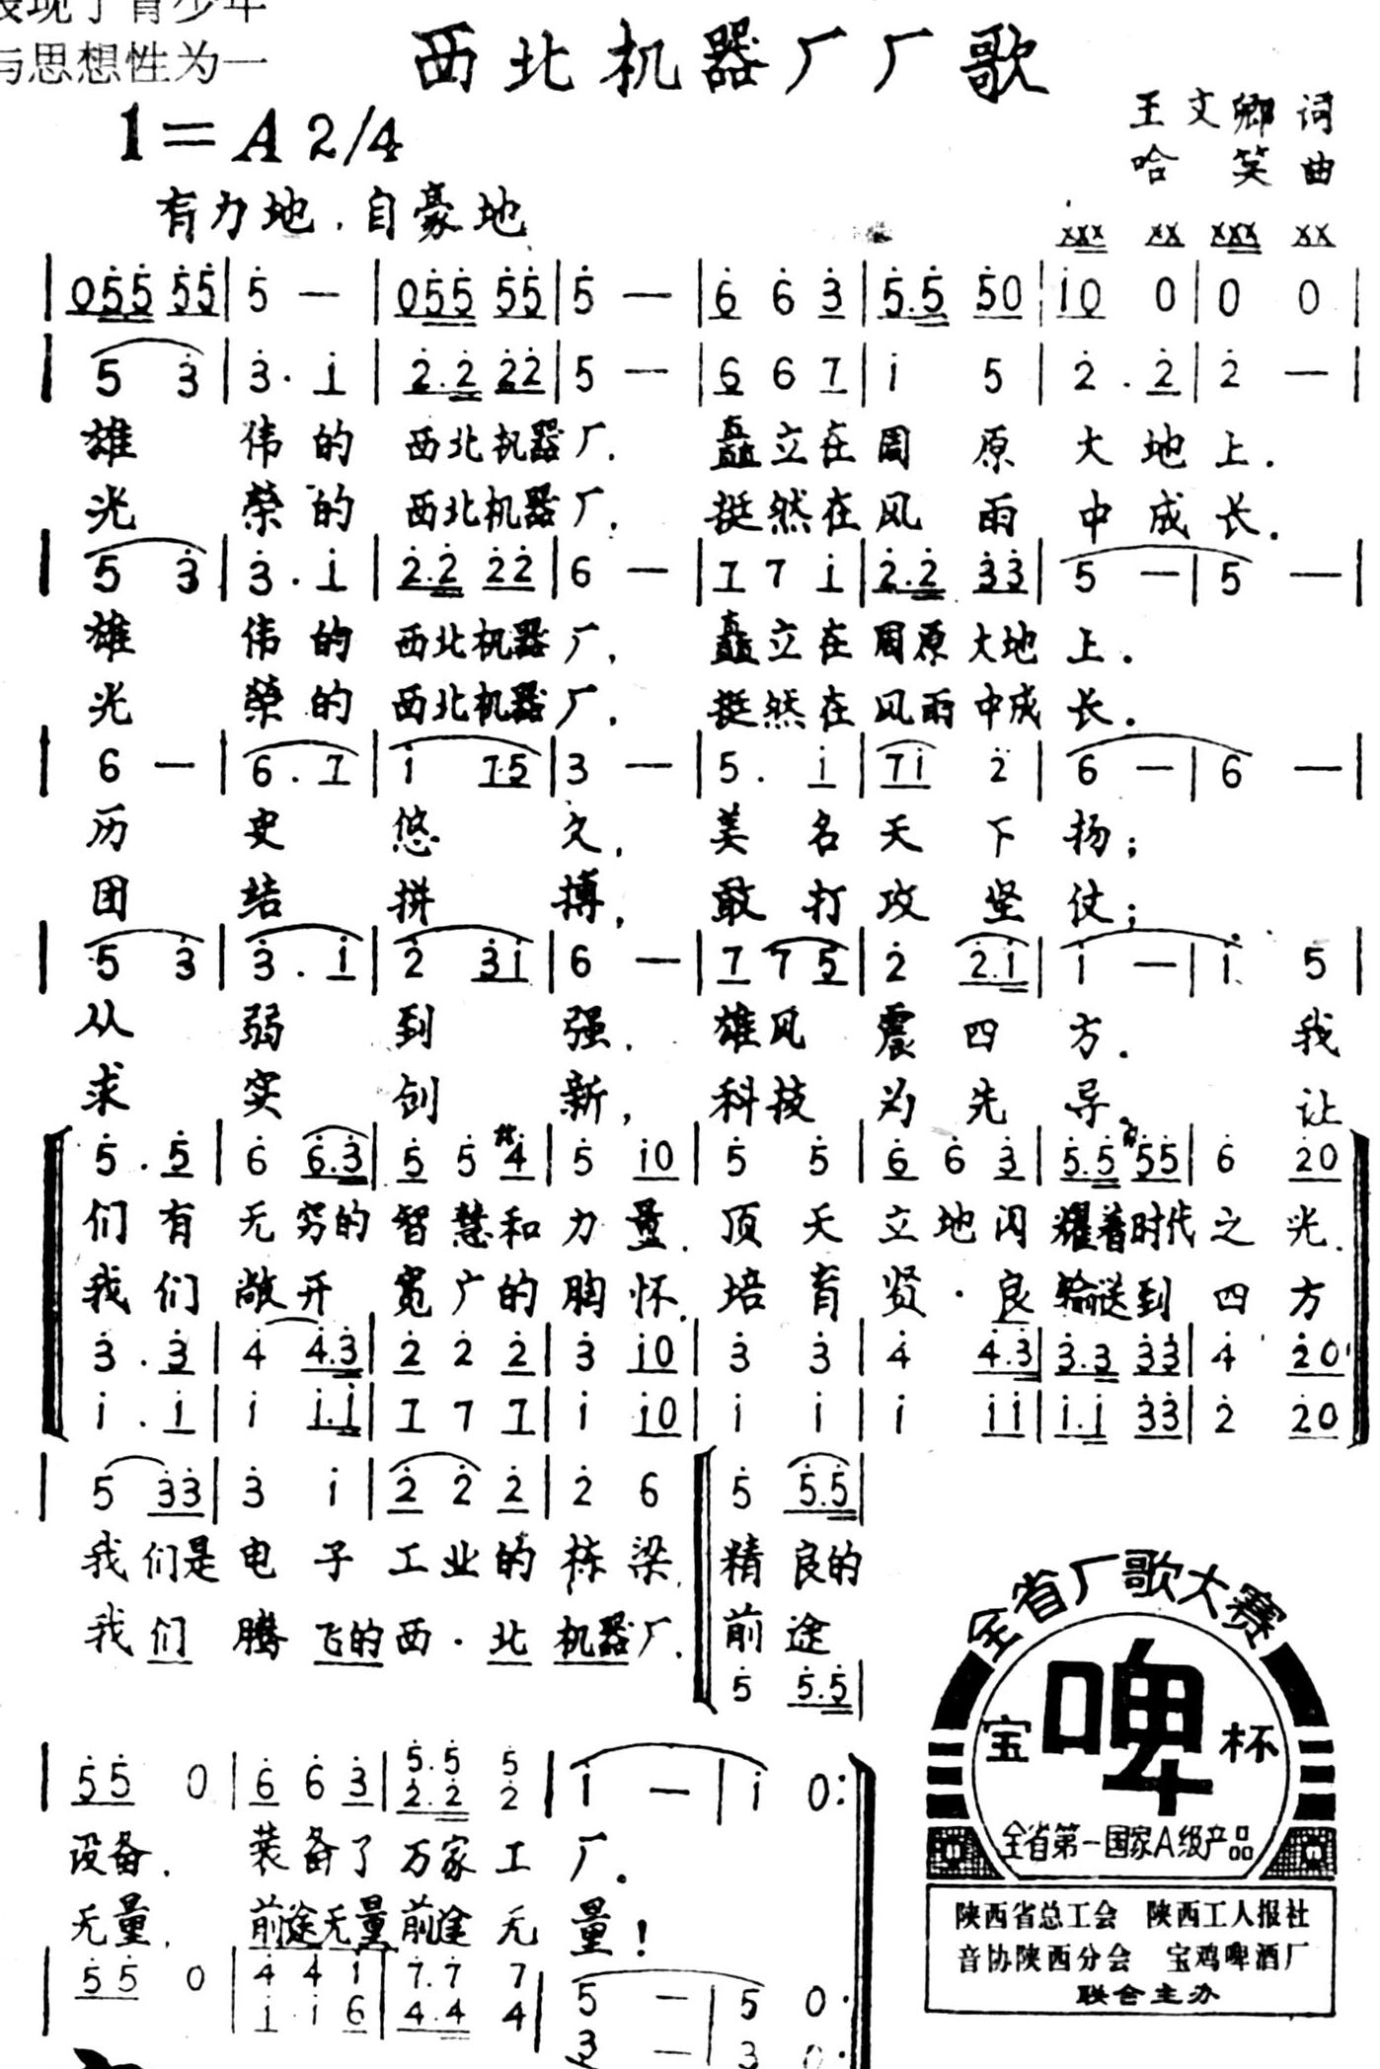 表现了青少年
与思想性为一
西北机器厂厂歌
1=A 2/4
王文卿 词
哈 笑 曲
有力地，自豪地
xxx xx xxx xx
|055 55|5 —|055 55|5 —|6 6 3|5.5 50|10 0|0 0|
|5 3|3. 1|2.2 22|5 —|6 6 7|1 5|2 . 2|2 —|
雄 伟的 西北机器厂， 矗立在周 原 大地上．
光 荣的 西北机器厂， 挺然在风 雨 中成长．
|5 3|3 . 1|2.2 22|6 —|7 7 1|2.2 33|5 —|5 —|
雄 伟的 西北机器厂， 矗立在周原大地上．
光 荣的 西北机器厂， 挺然在风雨中成长．
|6 —|6 . 7|1 7.5|3 —|5 . 1|71 2|6 —|6 —|
历 史 悠 久， 美 名 天 下 扬；
团 结 拼 搏， 敢 打 攻 坚 仗；
|5 3|3 . 1|2 31|6 —|7 7 5|2 2.1|1 —|1 5|
从 弱 到 强， 雄风 震 四 方． 我
求 实 创 新， 科技 为 先 导， 让
5 . 5|6 6.3|5 5 #4|5 10|5 5|6 6 3|5.5 55|6 20
们 有 无 穷的 智慧和 力 量， 顶 天 立地闪 耀着时代 之 光．
我 们 敞 开 宽广的 胸 怀， 培 育 贤·良 输送到 四 方
3 . 3|4 4.3|2 2 2|3 10|3 3|4 4.3|3.3 33|4 20
1 . 1|1 1.1|7 7 7|1 10|1 1|1 11|1.1 33|2 20
|5 33|3 1|2 2 2|2 6|5 5.5|
我 们是 电 子 工业的 栋 梁， 精 良的
我 们 腾 飞的 西·北 机器厂， 前 途
5 5.5|
|55 0|6 6 3|5.5 5|1 —|1 0:
2.2 2
设备， 装备了 万家 工 厂．
无量， 前途无量 前途 无 量！
55 0|4 4 1|7.7 7|5 —|5 0
1 · 1 6|4.4 4|3 —|3 0
全省厂歌大赛
宝 啤 杯
全省第一国家A级产品
陕西省总工会 陕西工人报社
音协陕西分会 宝鸡啤酒厂
联合主办